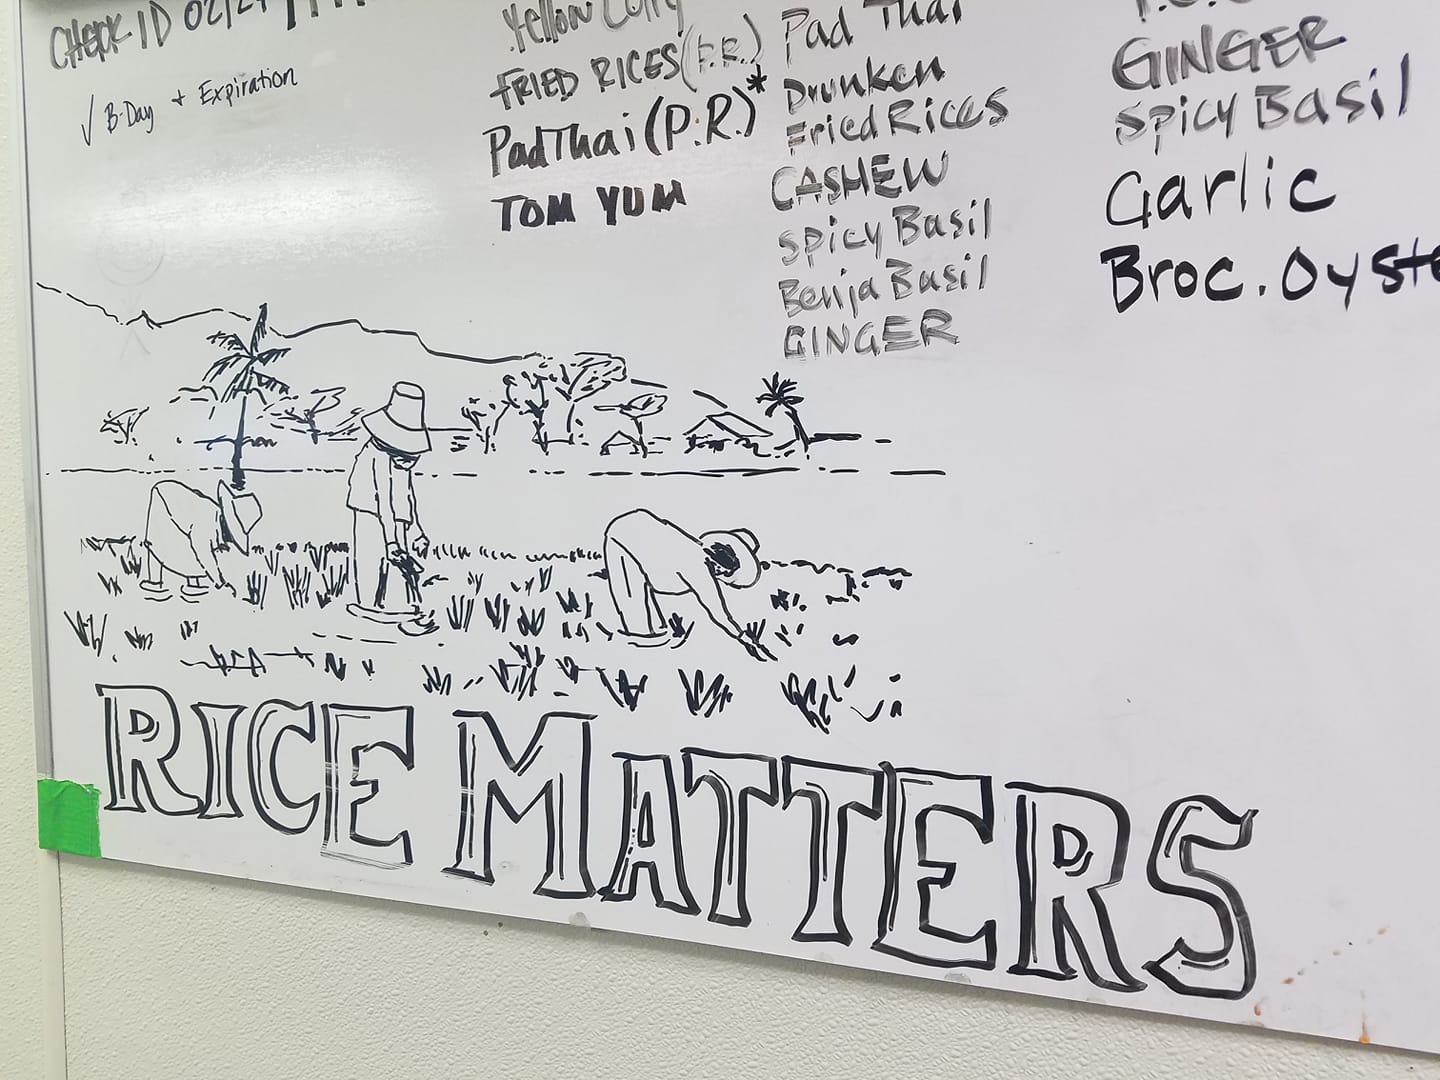 CHECK ID
✓ B-Day + Expiration
Yellow Curry
FRIED RICES (P.R.)
Pad Thai (P.R.)*
TOM YUM
Pad Thai
Drunken
Fried Rices
CASHEW
Spicy Basil
Benja Basil
GINGER
GINGER
Spicy Basil
Garlic
Broc. Oyste
RICE MATTERS